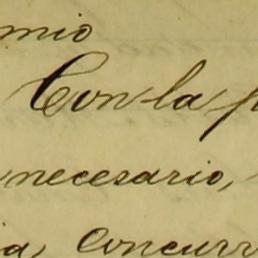 mio
Con la p
necesario,
ia, concurr